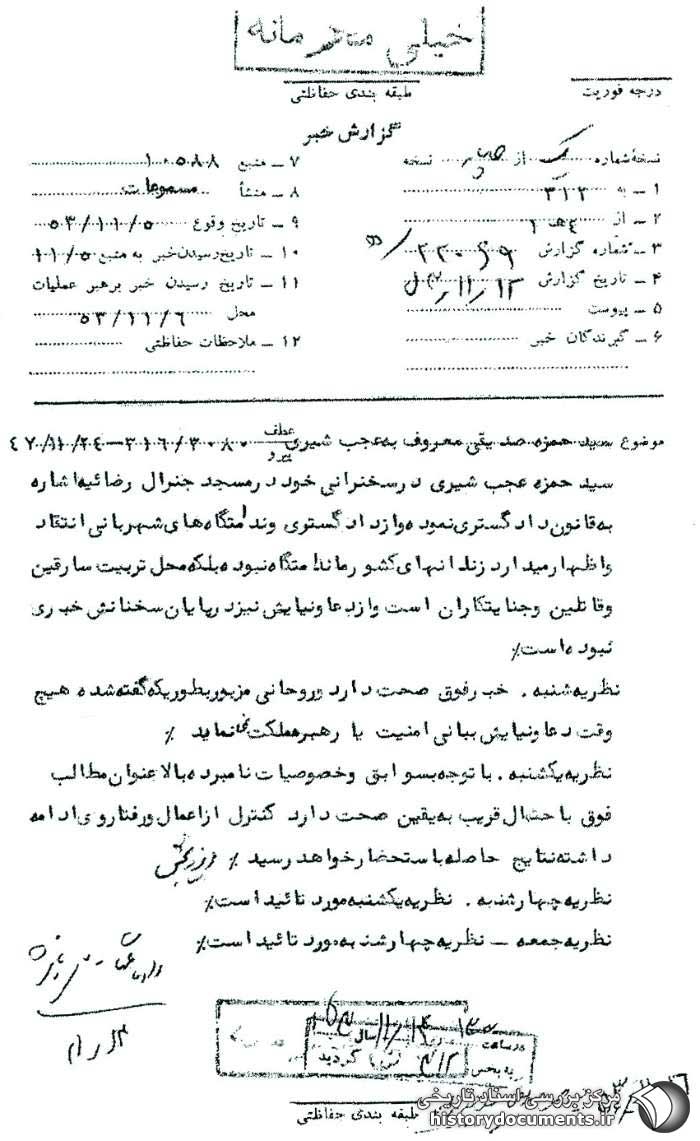 خیلی محرمانه
طبقه بندی حفاظتی
درجه فوریت
گزارش خبر
نسخهٔ شماره یک از نسخه
۱ ـ به ۳۱۲
۲ ـ از ۴ هـ ۱
۳ ـ شماره گزارش
۴ ـ تاریخ گزارش
۵ ـ پیوست
۶ ـ گیرندگان خبر
۷ ـ منبع ۱۰۵۸۸
۸ ـ منشأ مسموعات
۹ ـ تاریخ وقوع ۵۳/۱۱/۵
۱۰ ـ تاریخ رسیدن خبر به منبع ۱۱/۵
۱۱ ـ تاریخ رسیدن خبر برهبر عملیات
محل ۵۳/۱۱/۶
۱۲ ـ ملاحظات حفاظتی
موضوع سید حمزه صدیقی معروف به عجب شیری عطف پیرو ۳۱۶/۳۰۸۰ـ۴۷/۱۱/۲۴
سید حمزه عجب شیری در سخنرانی خود در مسجد جنرال رضائیه اشاره
به قانون دادگستری نموده و از دادگستری و ندامتگاه های شهربانی انتقاد
و اظهار میدارد زندانهای کشور ما ندامتگاه نبوده بلکه محل تربیت سارقین
و قاتلین و جنایتکاران است و از دعا و نیایش نیز در پایان سخنانش خبری
نبوده است٪
نظریه شنبه . خبر فوق صحت دارد و روحانی مزبور بطوریکه گفته شده هیچ
وقت دعا و نیایش ببانی امنیت یا رهبر مملکت نمی نماید ٪
نظریه یکشنبه . با توجه بسوابق و خصوصیات نامبرده بالا عنوان مطالب
فوق با حتمال قریب به یقین صحت دارد کنترل از اعمال و رفتار وی ادامه
داشته نتایج حاصله باستحضار خواهد رسید ٪
نظریه چهارشنبه . نظریه یکشنبه مورد تائید است٪
نظریه جمعه ـ نظریه چهارشنبه مورد تائید است٪
در ساعت
سال
به بخش ۳۱۲ گردید
طبقه بندی حفاظتی
مرکز بررسی اسناد تاریخی
historydocuments.ir